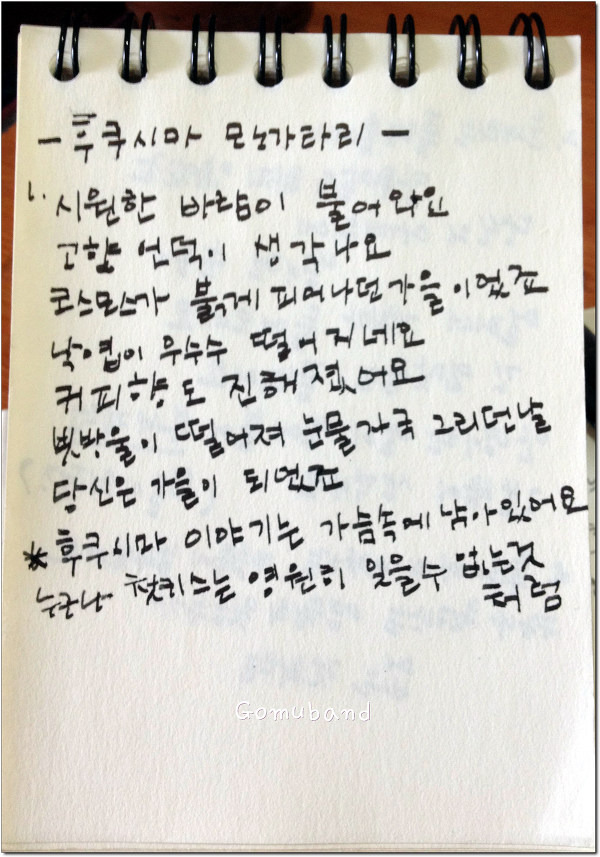 - 후쿠시마 모노가타리 -
1. 시원한 바람이 불어와요
고향 언덕이 생각나요
코스모스가 붉게 피어나던 가을이었죠
낙엽이 우수수 떨어지네요
커피향도 진해졌어요
빗방울이 떨어져 눈물자국 그리던날
당신은 가을이 되었죠
* 후쿠시마 이야기는 가슴속에 남아있어요
누구나 첫키스는 영원히 잊을수 없는것
처럼
Gomuband